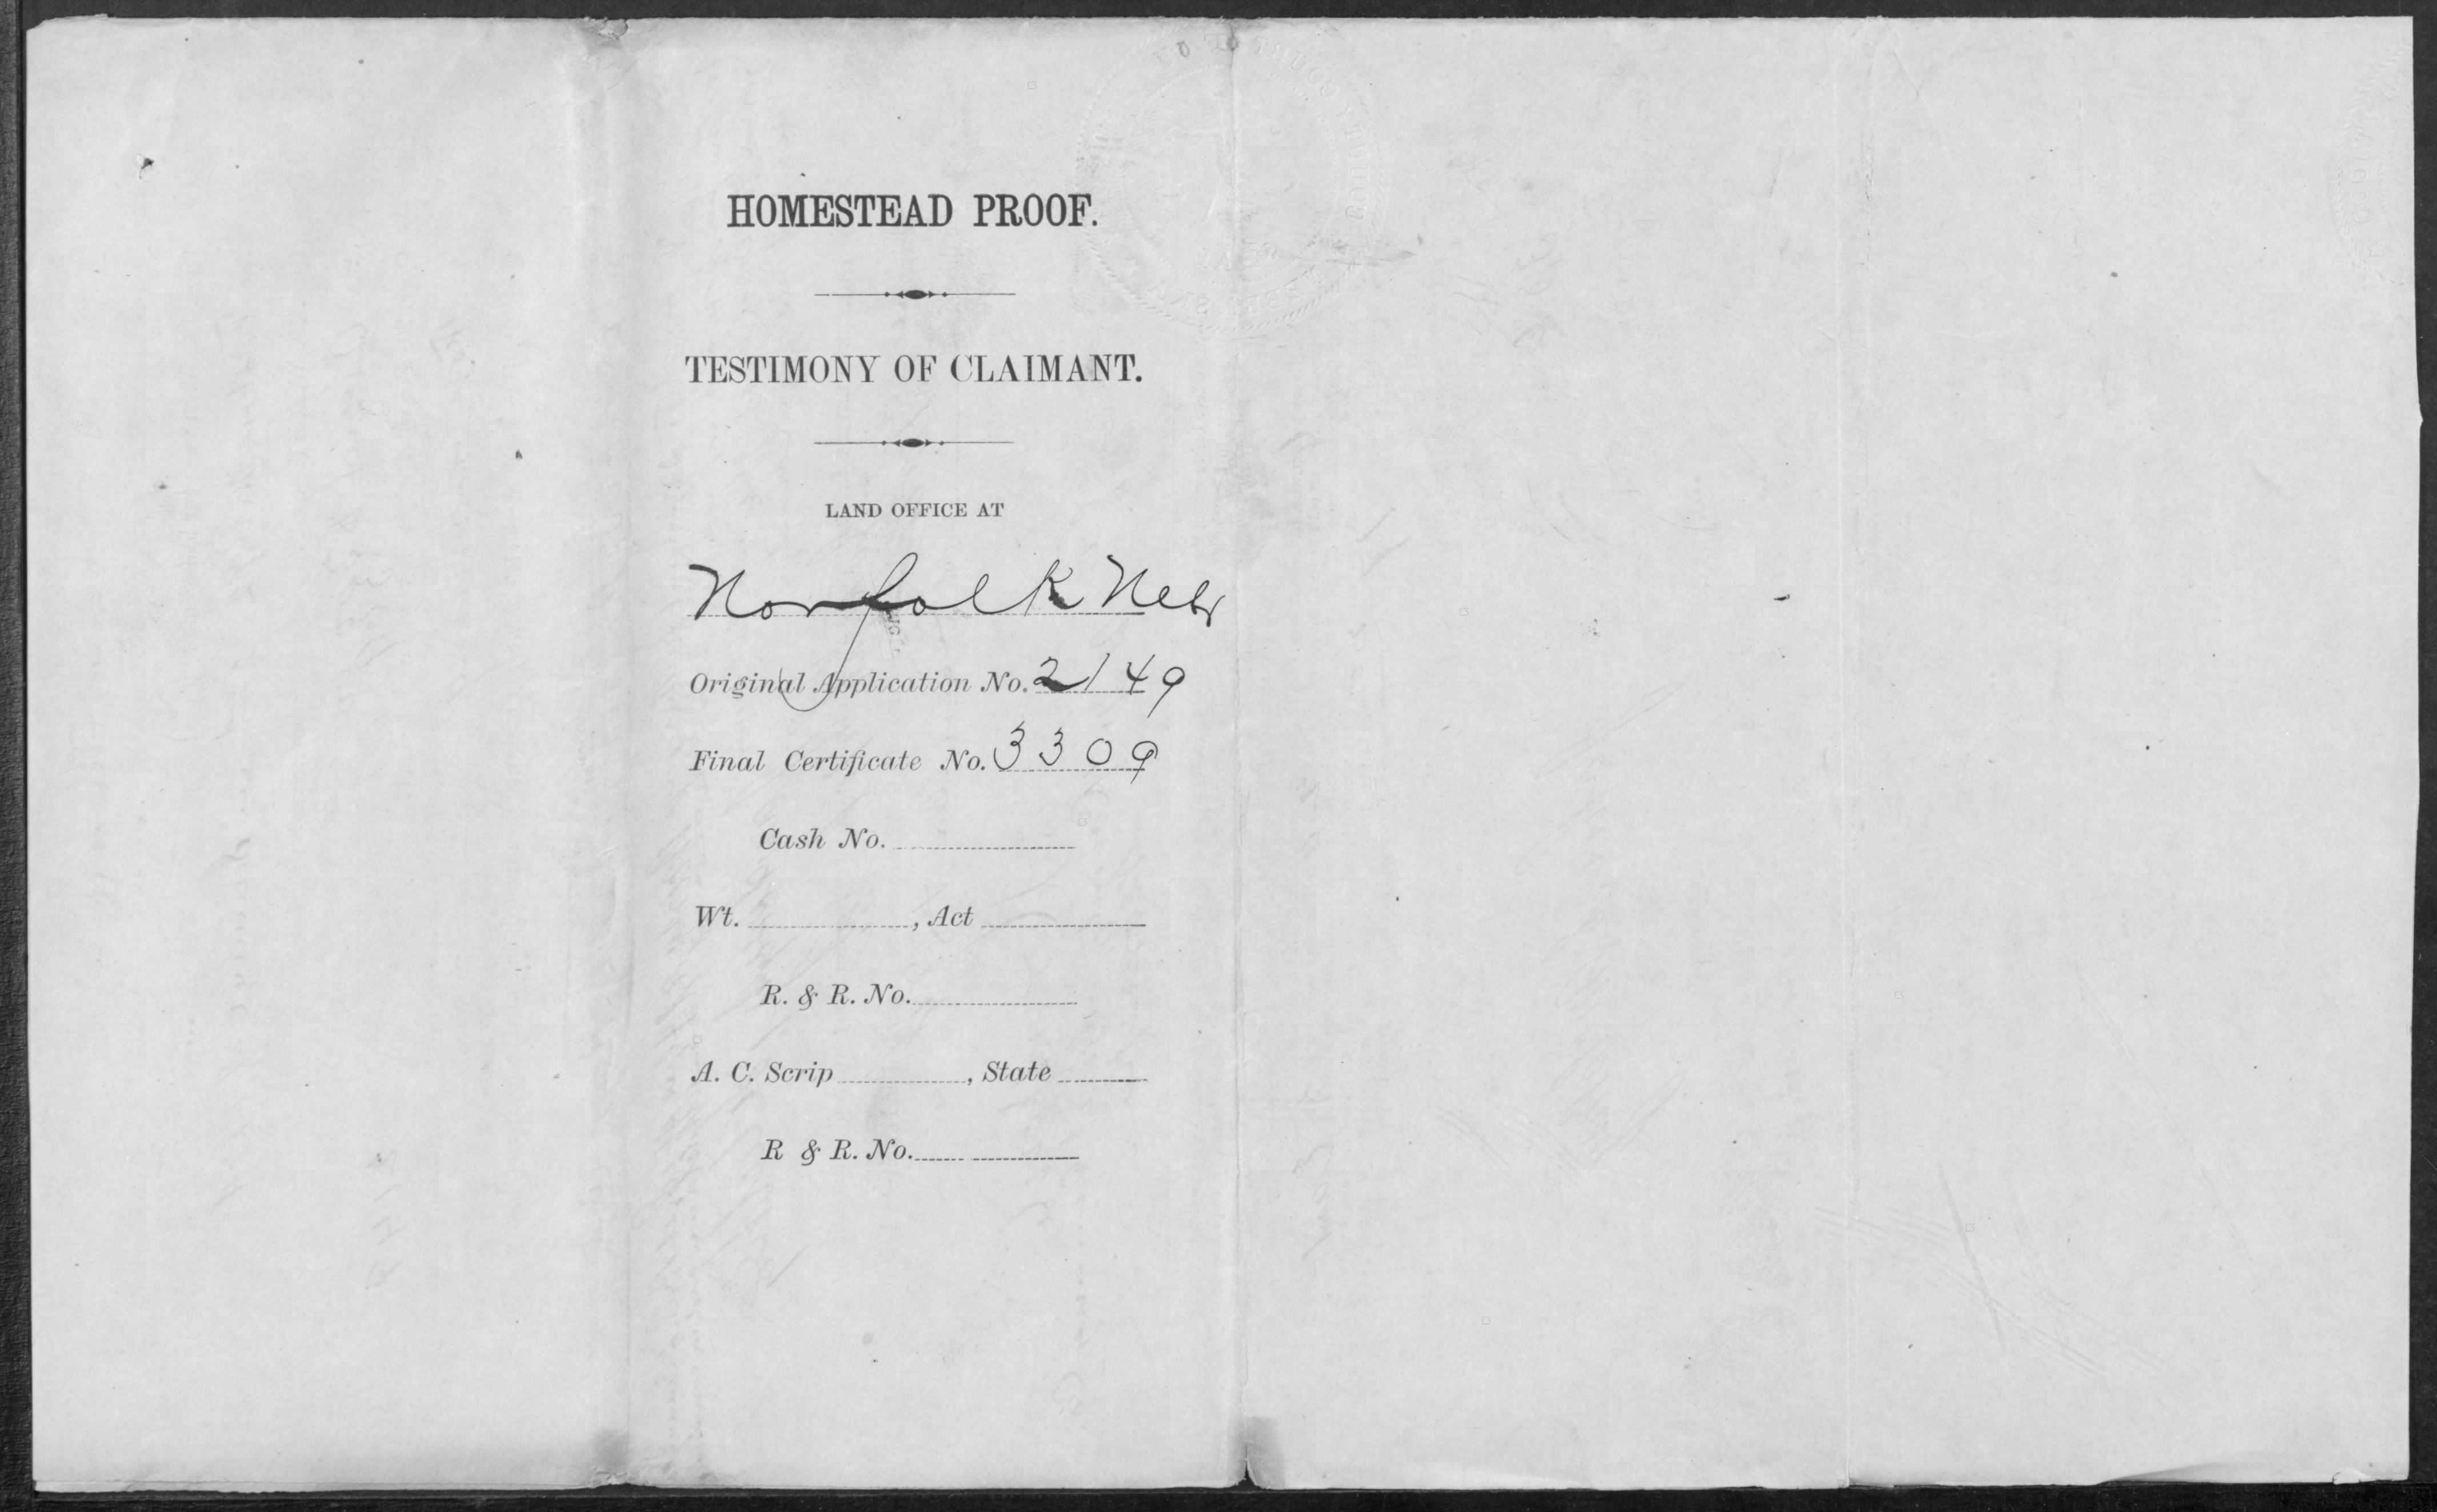 HOMESTEAD PROOF.
TESTIMONY OF CLAIMANT.
LAND OFFICE AT
Norfolk Nebr
Original Application No. 2149
Final Certificate No. 3309
Cash No.
Wt. , Act
R. & R. No.
A. C. Scrip , State
R & R. No.